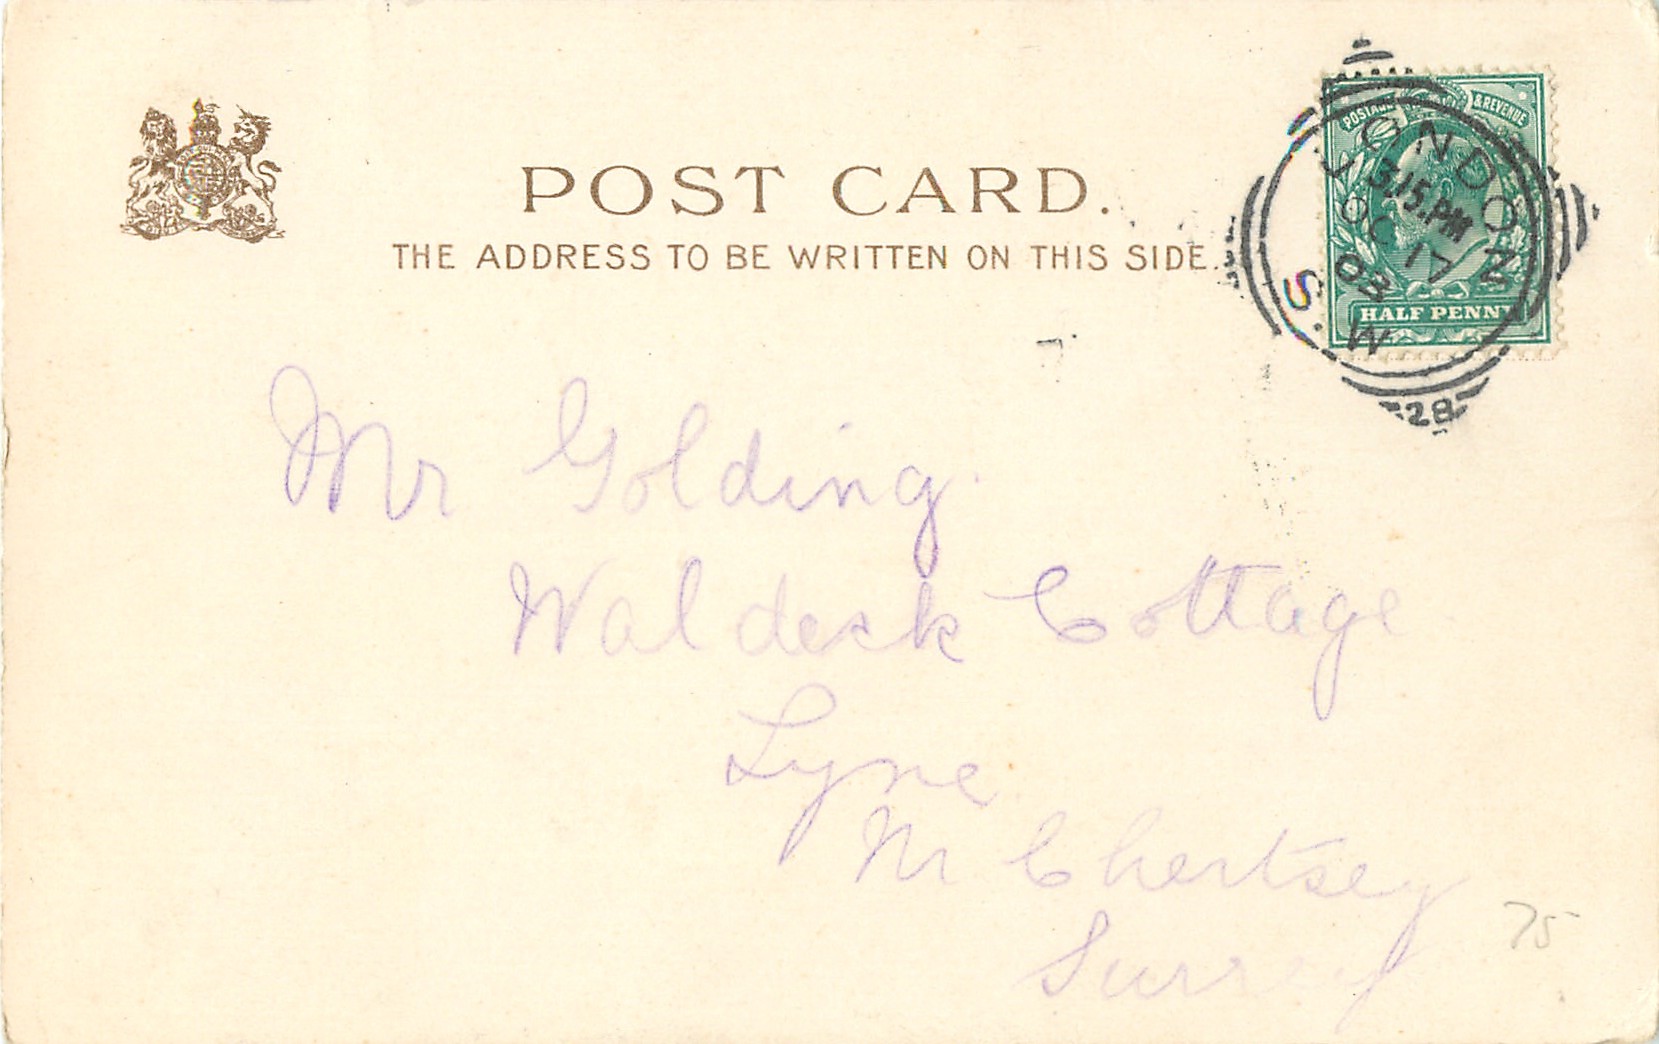 POST CARD.
THE ADDRESS TO BE WRITTEN ON THIS SIDE.
POSTAGE & REVENUE
HALF PENNY
LONDON
3.15.PM
OC 17
03
S.W
28
Mr Golding.
Waldeck Cottage
Lyne
Nr Chertsey
Surrey
75